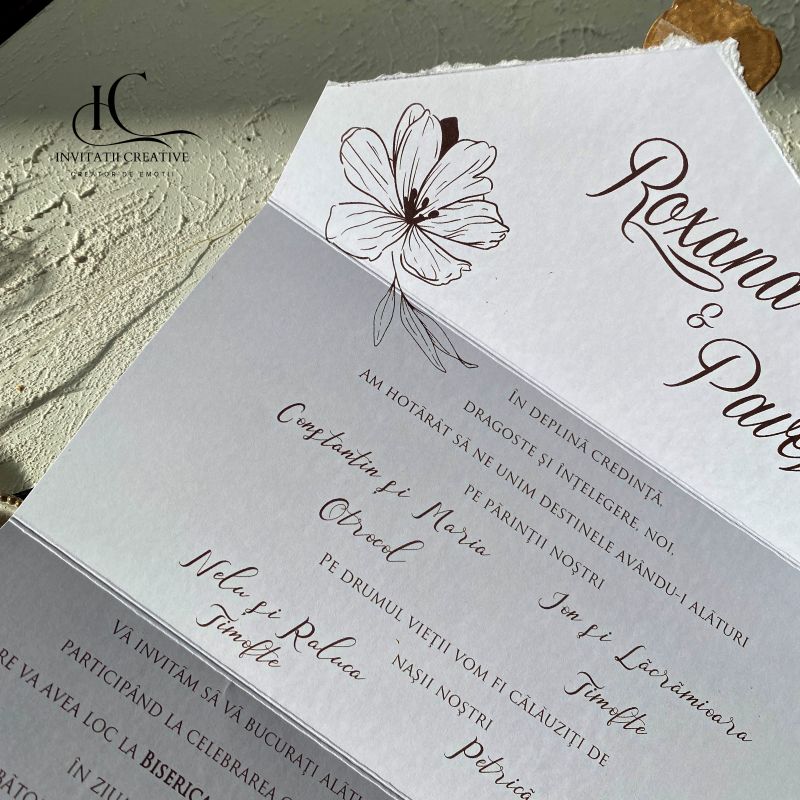 IC
INVITATII CREATIVE
CREATOR DE EMOTII
Roxana
&
Pavel
ÎN DEPLINĂ CREDINȚĂ,
DRAGOSTE ȘI ÎNȚELEGERE, NOI,
AM HOTĂRÂT SĂ NE UNIM DESTINELE AVÂNDU-I ALĂTURI
PE PĂRINȚII NOȘTRI
Constantin și Maria
Otrocol
Ion și Lăcrămioara
Timofte
PE DRUMUL VIEȚII VOM FI CĂLĂUZIȚI DE
NAȘII NOȘTRI
Nelu și Raluca
Timofte
Petrică
VĂ INVITĂM SĂ VĂ BUCURAȚI
PARTICIPÂND LA CELEBRAREA
VA AVEA LOC LA BISERICA
ÎN